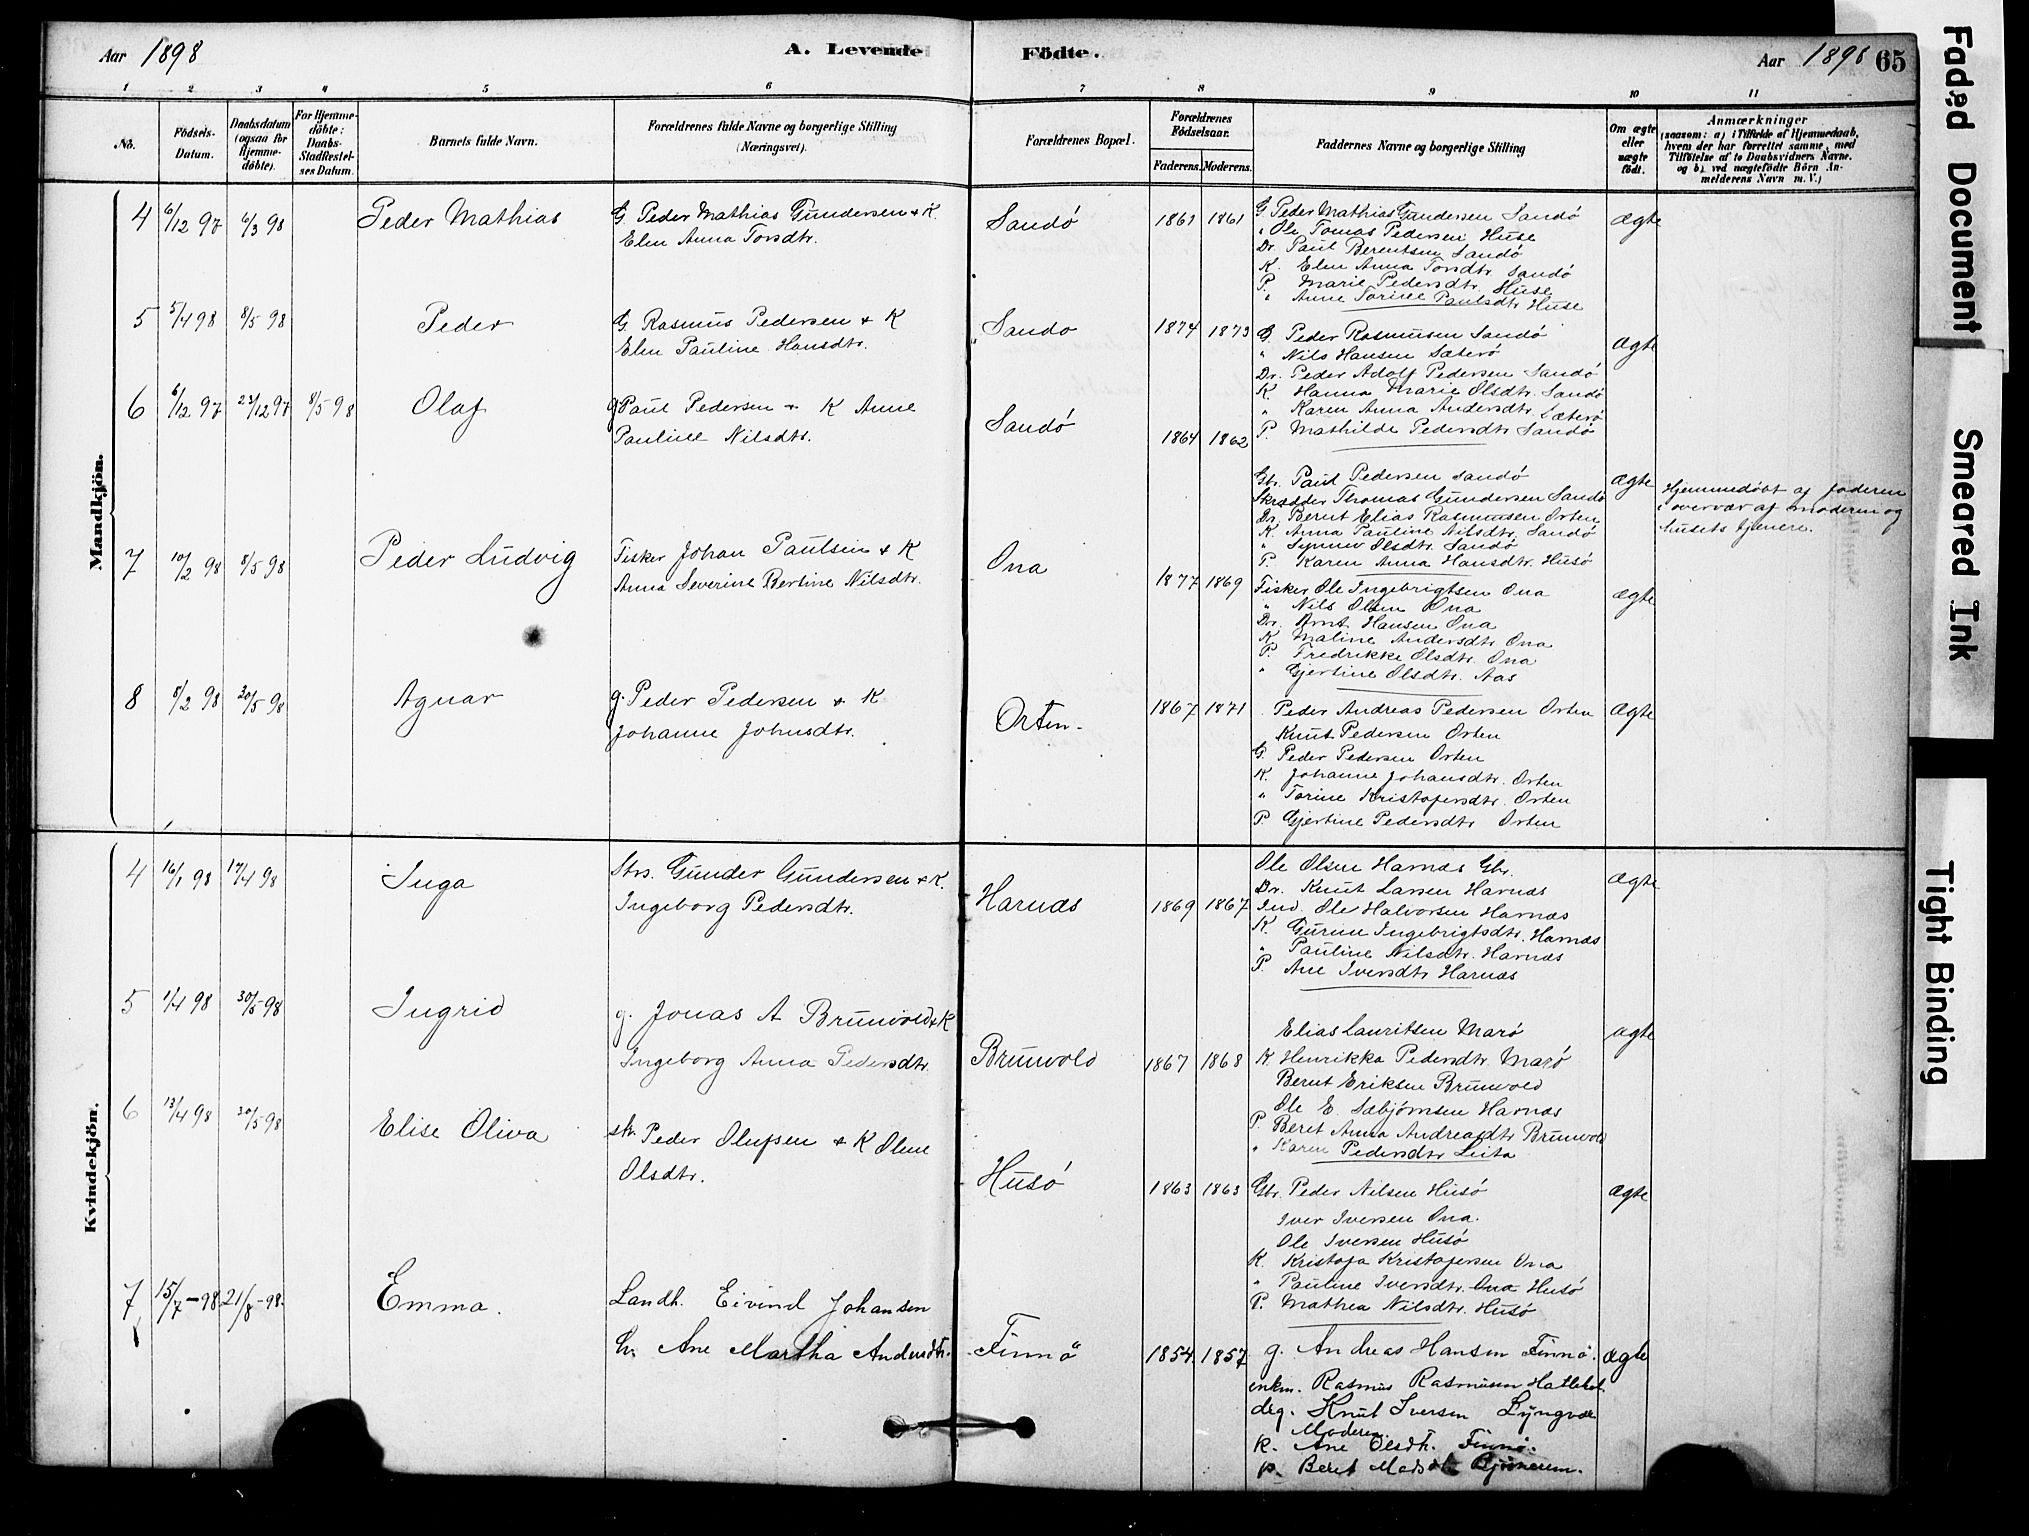 Aar 1898
A. Levende
Födte.
Aar 1898
65
1 2 3 4 5 6 7 8 9 10 11
No.
Födsels-Datum.
Daabsdatum (ogsaa for Hjemme-döbte).
For Hjemme-döbte: Daabs-Stadfestel-ses Datum.
Barnets fulde Navn.
Forældrenes fulde Navne og borgerlige Stilling (Næringsvei).
Forældrenes Bopæl.
Forældrenes Födselsaar.
Faderens. Moderens.
Faddernes Navne og borgerlige Stilling
Om ægte eller uægte födt.
Anmærkninger
(saasom: a) i Tilfælde af Hjemmedaab, hvem der har forrettet samme, med Tilföielse af to Daabsvidners Navne. og b) ved uægtefödte Börn An-melderens Navn m. V.)
Mandkjön.
4 6/12 97 6/3 98 Peder Mathias
G. Peder Mathias Gundersen & K.
Elen Anna Torsdtr.
Sandö 1861 1861
G. Peder Mathias Gundersen Sandö
" Ole Tomas Pedersen Huse
Dr. Paul Berentsen Sandö
K. Elen Anna Torsdtr. Sandö
P. Marie Pedersdtr. Huse
" Anne Torine Paulsdtr. Huse
ægte
5 5/4 98 8/5 98 Peder
G. Rasmus Pedersen & K
Elen Pauline Hansdtr.
Sandö 1874 1873
G. Peder Rasmusen Sandö
" Nils Hansen Sæterö
Dr. Peder Adolf Pedersen Sandö
K. Hanna Marie Olsdtr. Sandö
" Karen Anna Andersdtr. Sæterö
P. Mathilde Pedersdtr. Sandö
ægte
6 6/12 97 23/12 97 8/5 98 Olaf
g Paul Pedersen & K Anne
Pauline Nilsdtr.
Sandö 1864 1862
Gbr. Paul Pedersen Sandö
Skrædder Thomas Gundersen Sandö
Dr. Bernt Elias Rasmussen Orten
K. Anna Pauline Nilsdtr. Sandö
" Synnev Olsdtr. Sandö
P. Karen Anna Hansdtr. Husö
ægte
Hjemmedöbt af faderen
i overvær af moderen og
husets tjenere.
7 10/2 98 8/5 98 Peder Ludvig
Fisker Johan Paulsen & K
Anna Severine Bertine Nilsdtr.
Ona 1877 1869
Fisker Ole Ingebrigtsen Ona
" Nils Olsen Ona
Dr. Arnt Hansen Ona
K. Maline Andersdtr. Ona
P. Fredrikke Olsdtr. Ona
" Gjertine Olsdtr. Aas
ægte
8 8/2 98 30/5 98 Agnar
g. Peder Pedersen & K
Johanne Johnsdtr.
Orten. 1867 1871
Peder Andreas Pedersen Orten
Knut Pedersen Orten
G. Peder Pedersen Orten
K. Johanne Johansdtr. Orten
" Torine Kristofersdtr. Orten
P. Gjertine Pedersdtr. Orten
ægte
Kvindekjön.
4 16/1 98 17/4 98 Inga
Strs. Gunder Gundersen & K.
Ingeborg Pedersdtr.
Harnæs 1869 1867
Ole Olsen Harnæs Gbr.
Dr. Knut Larsen Harnæs
Ind. Ole Halvorsen Harnæs
K. Gurine Ingebrigtsdtr. Harnæs
" Pauline Nilsdtr. Harnæs
P. Ane Iversdtr. Harnæs
ægte
5 1/4 98 30/5 98 Ingrid
g. Jonas A Brunvold & K
Ingeborg Anna Pedersdtr.
Brunvold 1867 1868
Elias Lauritsen Marö
K. Henrikka Pedersdtr. Marö
Bernt Eriksen Brunvold
Ole E. Sæbjörnsen Harnæs
P. Beret Anna Andreasdtr. Brunvold
" Karen Pedersdtr. Leita
ægte
6 13/4 98 30/5 98 Elise Oliva
str. Peder Olufsen & K Oline
Olsdtr.
Husö 1863 1863
Gbr. Peder Nilsen Husö
Iver Iversen Ona.
Ole Iversen Husö
K. Kristofa Kristofersen Ona
" Pauline Iversdtr. Ona Husö
P. Mathea Nilsdtr. Husö
ægte
7 15/7-98. 21/8-98. Emma.
Landh. Eivind Johansen
h. Ane Martha Andersdtr.
Finnö 1854. 1857
g. Andreas Hansen Finnö.
enkm. Rasmus Rasmusen Hatlebol.
drg. Knut Iversen Lyngvær
Moderen.
k. Ane Olsdtr. Finnö.
p. Beret Madsdtr. Bjönerem.
ægte
Faded Document
Smeared Ink
Tight Binding